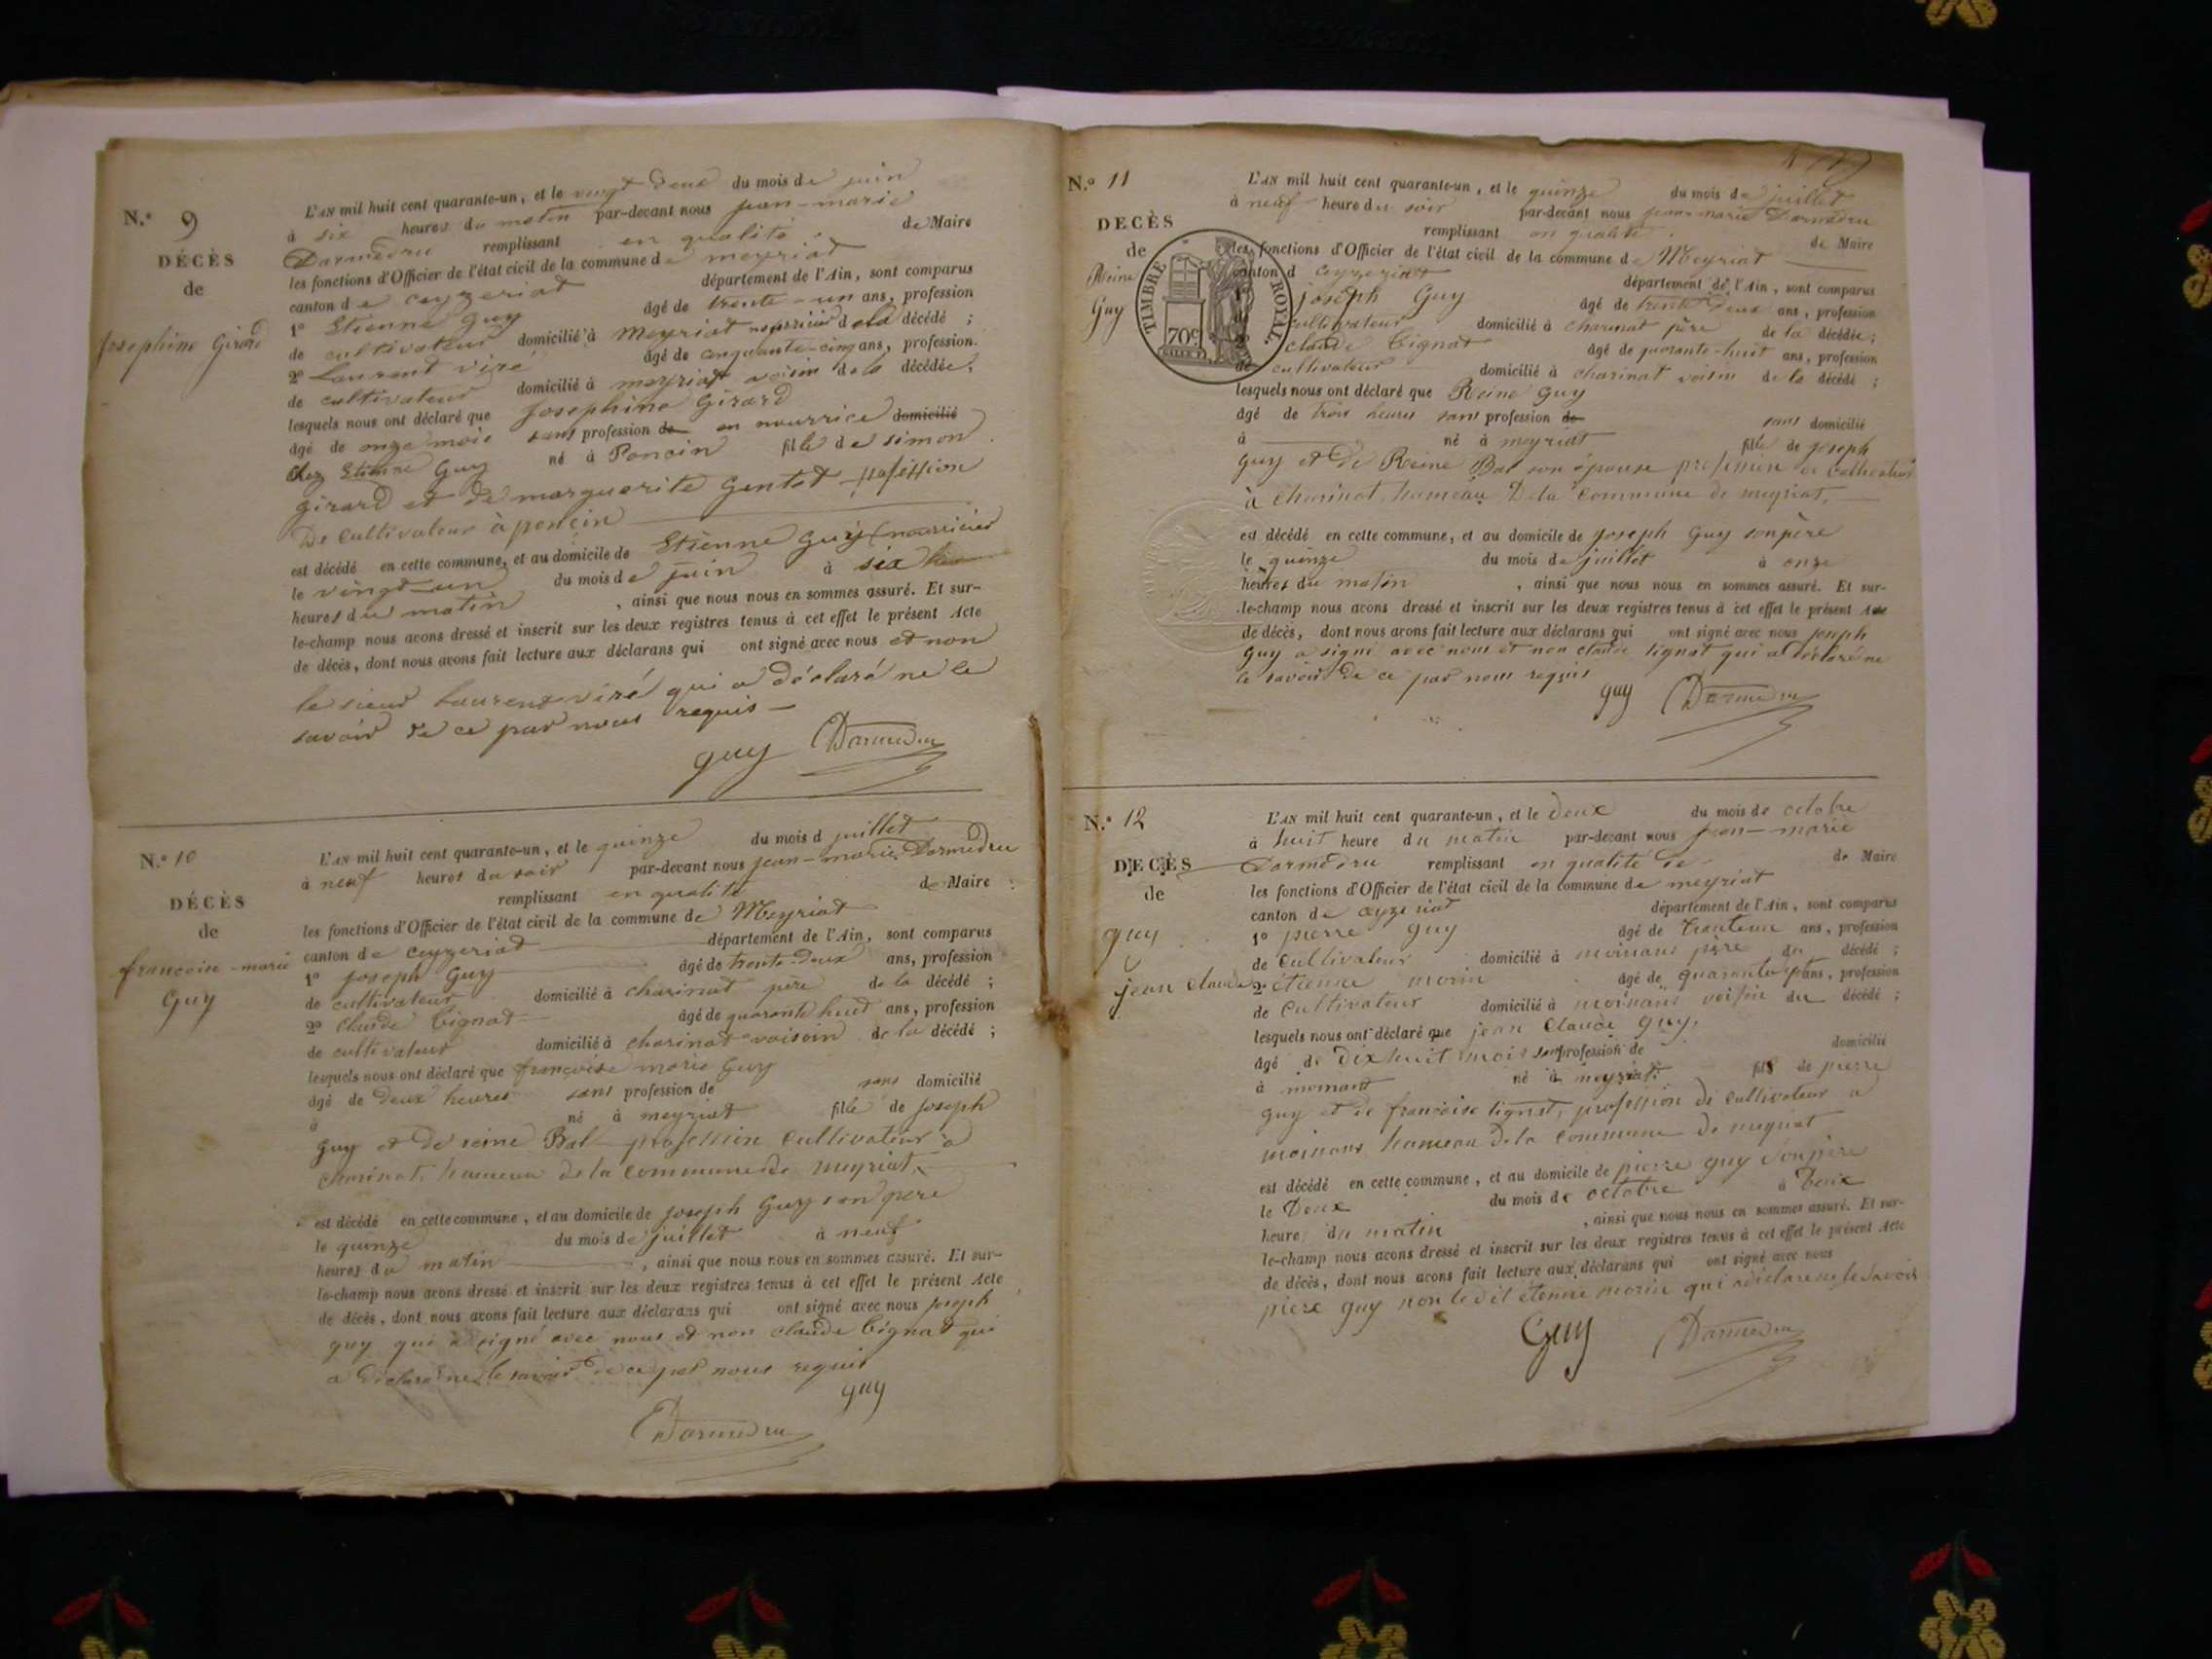 N.° 9
DÉCÈS
de
Josephine Girard
L'AN mil huit cent quarante-un, et le vingt deux du mois de juin
à six heures du matin par-devant nous jean-marie
Darmedru remplissant en qualité de Maire
les fonctions d'Officier de l'état civil de la commune de meyriat
canton de ceyzeriat département de l'Ain, sont comparus
1° Etienne Guy âgé de trente-un ans, profession
de cultivateur domicilié à Meyriat nourricier de la décédé ;
2° Laurent viré âgé de cinquante-cinq ans, profession.
de cultivateur domicilié à meyriat voisin de la décédée.
lesquels nous ont déclaré que Josephine Girard
âgé de onze mois sans profession de en nourrice domicilié
chez Etienne Guy né à Poncin fille de simon
girard et de marguerite Gentet profession
De Cultivateur à poncin
est décédé en cette commune, et au domicile de Etienne Guy nourricier
le vingt-un du mois de juin à six
heures du matin, ainsi que nous nous en sommes assuré. Et sur-
le-champ nous avons dressé et inscrit sur les deux registres tenus à cet effet le présent Acte
de décès, dont nous avons fait lecture aux déclarans qui ont signé avec nous et non
le sieur Laurent viré qui a déclaré ne le
savoir de ce par nous requis
guy Darmedru
N.° 10
DÉCÈS
de
francoise-marie
Guy
L'AN mil huit cent quarante-un, et le quinze du mois d juillet
à neuf heures du soir par-devant nous jean-marie Darmedru
remplissant en qualité de Maire
les fonctions d'Officier de l'état civil de la commune de Meyriat
canton de ceyzeriat département de l'Ain, sont comparus
1° Joseph Guy âgé de trente-deux ans, profession
de cultivateur domicilié à charinat père de la décédé ;
2° Claude Tignat âgé de quarante huit ans, profession
de cultivateur domicilié à charinat voisin de la décédé ;
lesquels nous ont déclaré que françoise marie Guy
âgé de deux heures sans profession de sans domicilié
à né à meyriat fille de Joseph
guy et de reine Bal profession Cultivateur a
charinat, hameau de la Commune de meyriat,
est décédé en cette commune, et au domicile de joseph Guy son pere
le quinze du mois de juillet à neuf
heures du matin, ainsi que nous nous en sommes assuré. Et sur-
le-champ nous avons dressé et inscrit sur les deux registres tenus à cet effet le présent Acte
de décès, dont nous avons fait lecture aux déclarans qui ont signé avec nous Joseph
guy qui a signé avec nous et non claude Tignat qui
a déclaré ne le savoir de ce par nous requis
guy
Darmedru
N.° 11
DECÈS
de
Reine
Guy
TIMBRE ROYAL.
70c
L'AN mil huit cent quarante-un, et le quinze du mois de juillet
à neuf heure du soir par-devant nous jean-marie Darmedru
remplissant en qualité de Maire
les fonctions d'Officier de l'état civil de la commune de Meyriat
canton d ceyzeriat département de l'Ain, sont comparus
joseph Guy âgé de trente deux ans, profession
cultivateur domicilié à charinat père de la décédée ;
claude Tignat âgé de quarante-huit ans, profession
de cultivateur domicilié à charinat voisin de la décédé ;
lesquels nous ont déclaré que Reine Guy
âgé de trois heures sans profession de sans domicilié
à né à meyriat fille de Joseph
guy et de Reine Bal son épouse profession de Cultivateur
à charinat, hameau De la Commune de meyriat,
est décédé en cette commune, et au domicile de Joseph Guy son père
le quinze du mois de juillet à onze
heures du matin, ainsi que nous nous en sommes assuré. Et sur-
le-champ nous avons dressé et inscrit sur les deux registres tenus à cet effet le présent Acte
de décès, dont nous avons fait lecture aux déclarans qui ont signé avec nous joseph
guy a signé avec nous et non claude tignat qui a déclaré ne
le savoir de ce par nous requis
guy Darmedru
N.° 12
DECÈS
de
guy
jean Claude
L'AN mil huit cent quarante-un, et le deux du mois de octobre
à huit heure du matin par-devant nous jean-marie
Darmedru remplissant en qualité de de Maire
les fonctions d'Officier de l'état civil de la commune de meyriat
canton de ceyzeriat département de l'Ain, sont comparus
1° pierre guy âgé de trenteun ans, profession
de Cultivateur domicilié à moinans père du décédé ;
2° étienne morin âgé de quarante ans, profession
de Cultivateur domicilié à moinans voisin du décédé ;
lesquels nous ont déclaré que jean Claude guy,
âgé de Dixhuit mois sans profession de domicilié
à moinans né à meyriat fils de pierre
guy et de françoise tignat, profession de cultivateur a
moinans hameau de la Commune de meyriat
est décédé en cette commune, et au domicile de pierre guy son père
le Deux du mois de octobre à Deux
heure du matin, ainsi que nous nous en sommes assuré. Et sur-
le-champ nous avons dressé et inscrit sur les deux registres tenus à cet effet le présent Acte
de décès, dont nous avons fait lecture aux déclarans qui ont signé avec nous
piere guy non le dit étienne morin qui a déclaré ne le savoir
Guy Darmedru